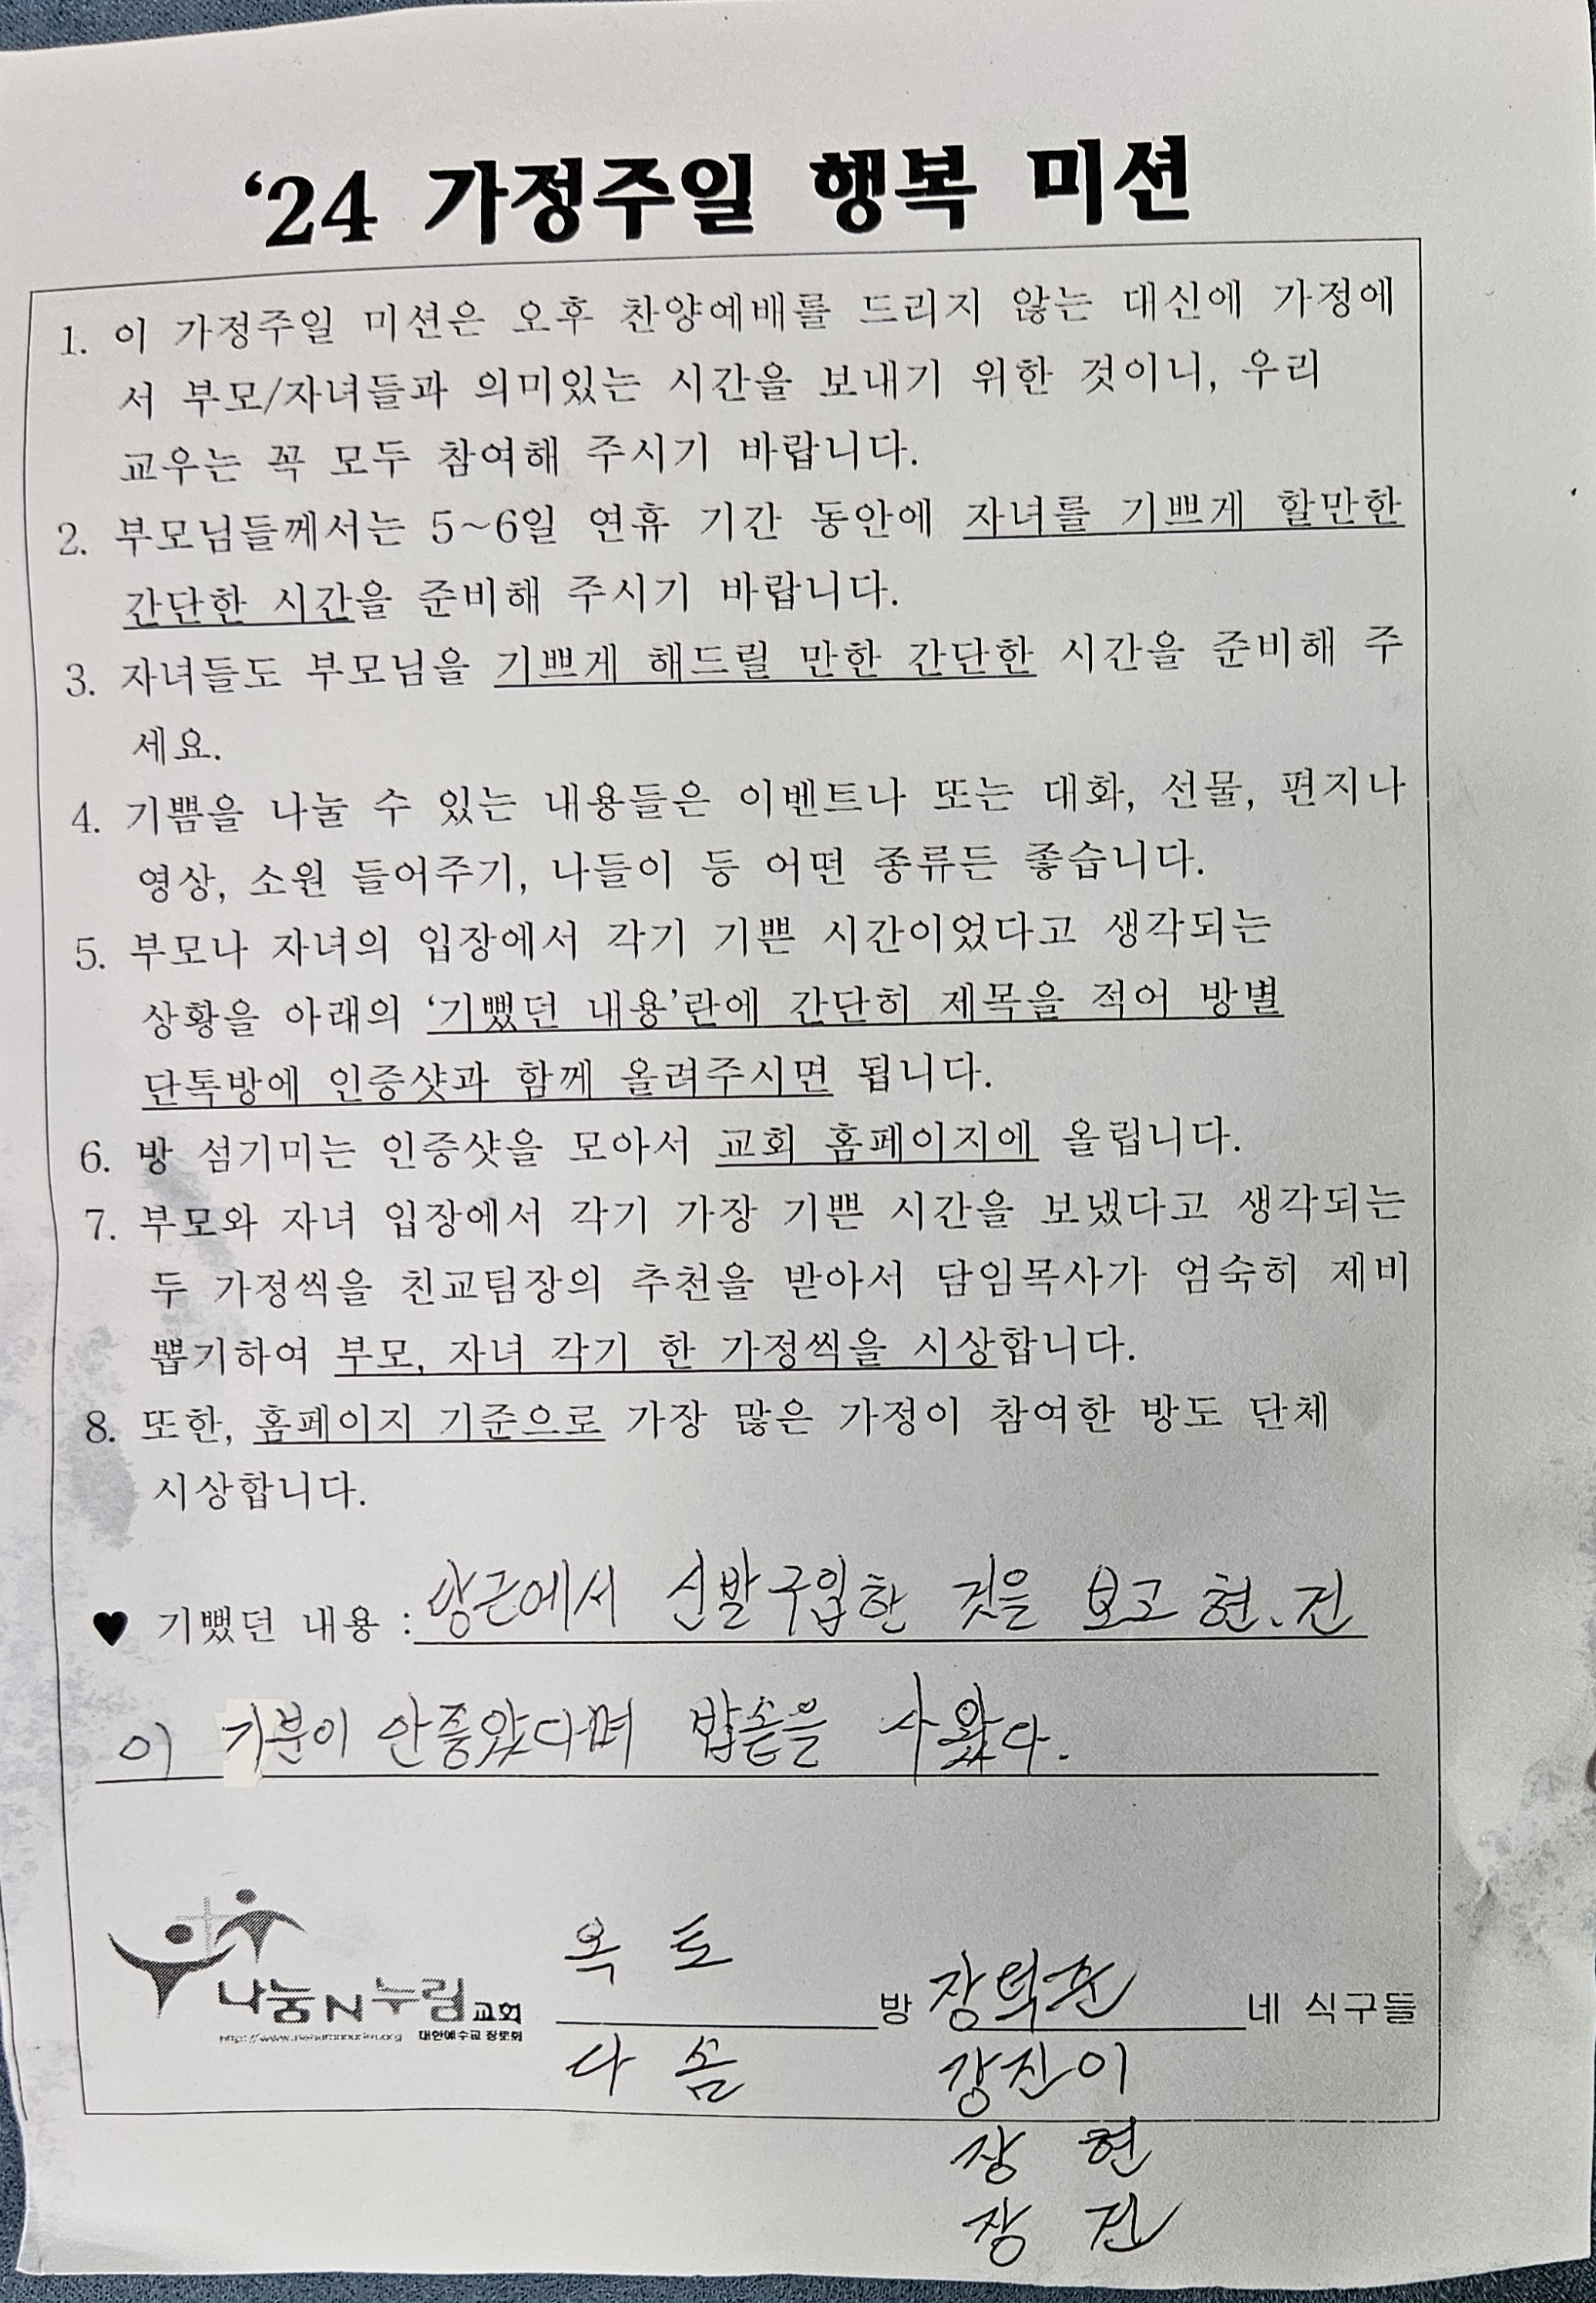 ‘24 가정주일 행복 미션
1. 이 가정주일 미션은 오후 찬양예배를 드리지 않는 대신에 가정에
서 부모/자녀들과 의미있는 시간을 보내기 위한 것이니, 우리
교우는 꼭 모두 참여해 주시기 바랍니다.
2. 부모님들께서는 5~6일 연휴 기간 동안에 자녀를 기쁘게 할만한
간단한 시간을 준비해 주시기 바랍니다.
3. 자녀들도 부모님을 기쁘게 해드릴 만한 간단한 시간을 준비해 주
세요.
4. 기쁨을 나눌 수 있는 내용들은 이벤트나 또는 대화, 선물, 편지나
영상, 소원 들어주기, 나들이 등 어떤 종류든 좋습니다.
5. 부모나 자녀의 입장에서 각기 기쁜 시간이었다고 생각되는
상황을 아래의 ‘기뻤던 내용’란에 간단히 제목을 적어 방별
단톡방에 인증샷과 함께 올려주시면 됩니다.
6. 방 섬기미는 인증샷을 모아서 교회 홈페이지에 올립니다.
7. 부모와 자녀 입장에서 각기 가장 기쁜 시간을 보냈다고 생각되는
두 가정씩을 친교팀장의 추천을 받아서 담임목사가 엄숙히 제비
뽑기하여 부모, 자녀 각기 한 가정씩을 시상합니다.
8. 또한, 홈페이지 기준으로 가장 많은 가정이 참여한 방도 단체
시상합니다.
♥ 기뻤던 내용 : 당근에서 신발구입한 것을 보고 현.건
이 기분이 안좋았다며 밥솥을 사왔다.
나눔N누림교회
대한예수교 장로회
옥토 방 장덕훈 네 식구들
다솜 강진이
장 현
장 건